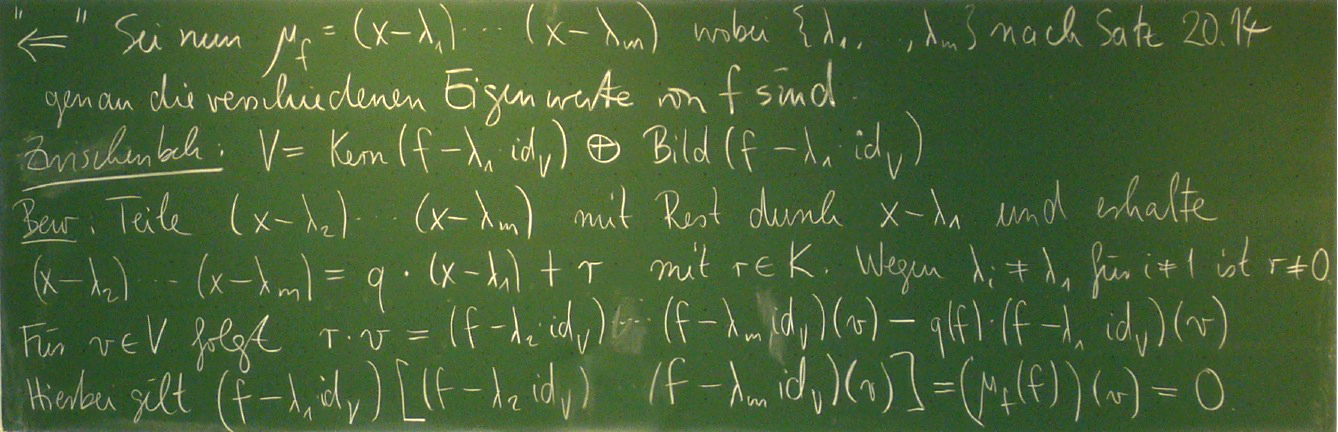 "⇐" Sei nun μ_f = (x-λ₁) ··· (x-λ_m) wobei {λ₁, ..., λ_m} nach Satz 20.14
genau die verschiedenen Eigenwerte von f sind.
Zwischenbeh.: V = Kern(f-λ₁ id_V) ⊕ Bild(f-λ₁ · id_V)
Bew.: Teile (x-λ₂) ··· (x-λ_m) mit Rest durch x-λ₁ und erhalte
(x-λ₂) ··· (x-λ_m) = q · (x-λ₁) + r mit r ∈ K. Wegen λ_i ≠ λ₁ für i ≠ 1 ist r ≠ 0
Für v ∈ V folgt r · v = (f-λ₂ · id_V) ··· (f-λ_m id_V)(v) - q(f) · (f-λ₁ id_V)(v)
Hierbei gilt (f-λ₁ id_V) [(f-λ₂ id_V) (f-λ_m id_V)(v)] = (μ_f(f))(v) = 0.